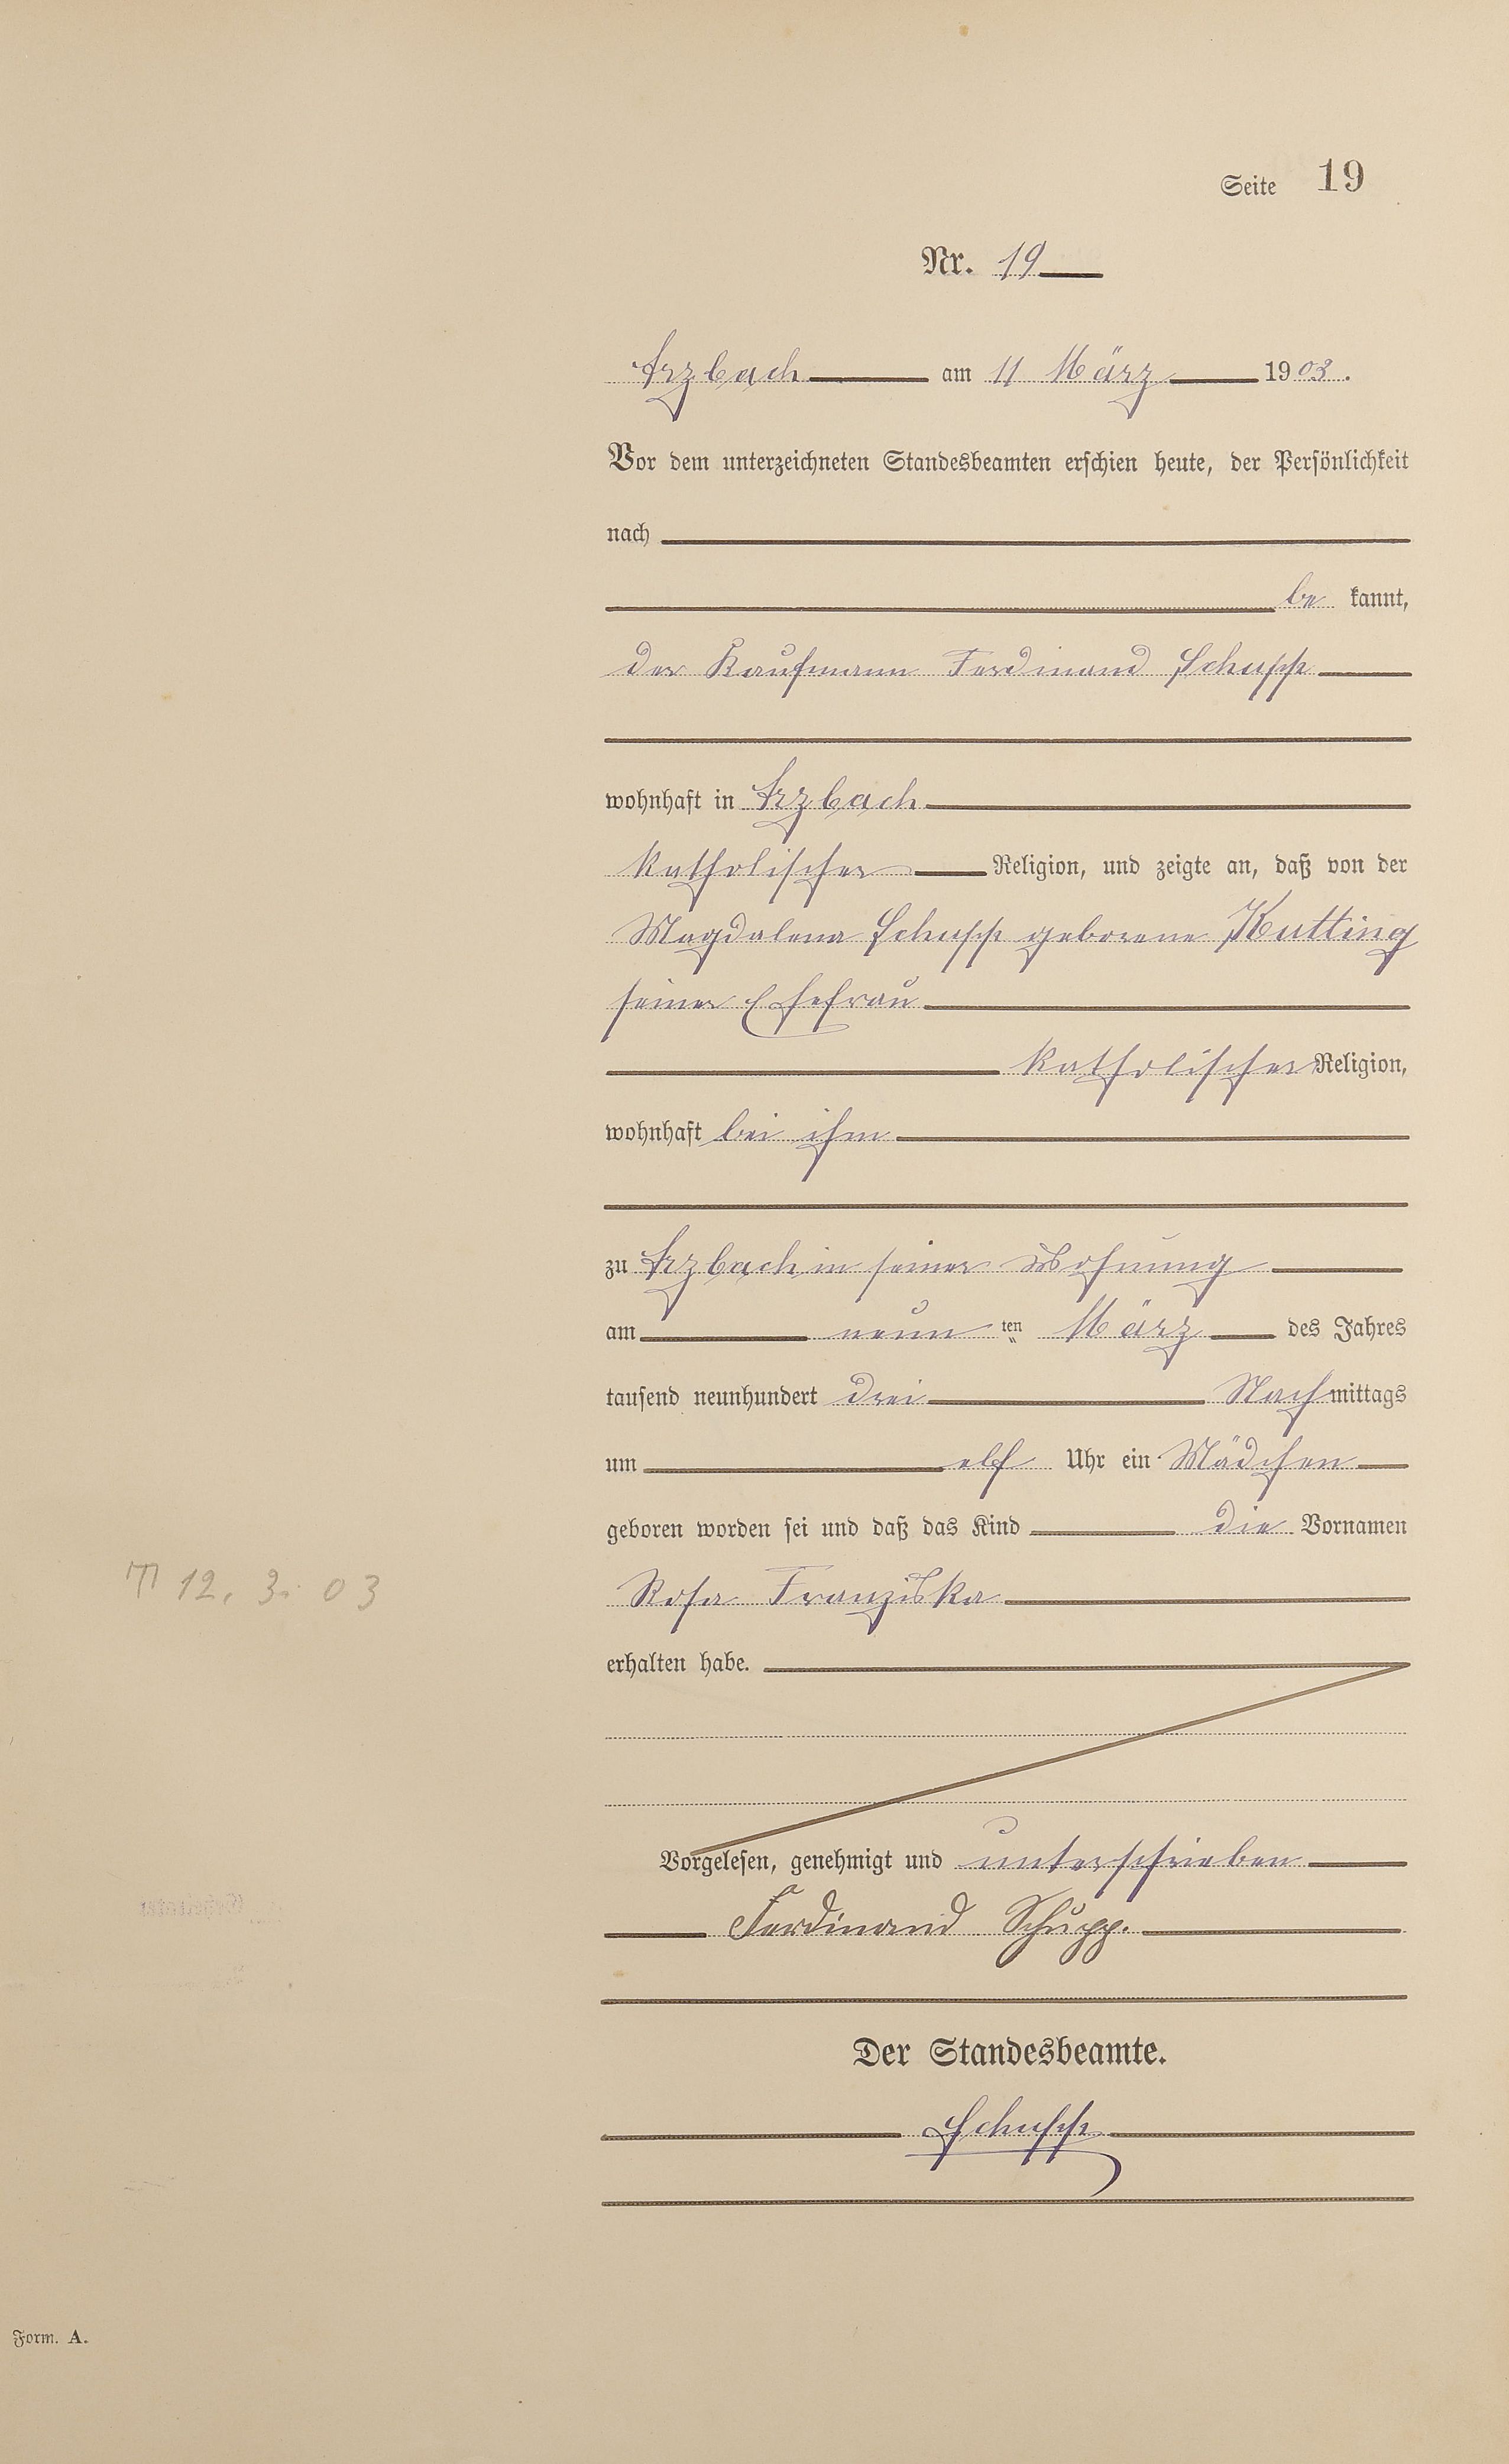 Seite 19
Nr. 19
Arzbach am 11 März 1903.
Vor dem unterzeichneten Standesbeamten erschien heute, der Persönlichkeit
nach
be kannt,
der Kaufmann Ferdinand Schupp
wohnhaft in Arzbach
katholischer Religion, und zeigte an, daß von der
Magdalena Schupp geborene Kutting
seiner Ehefrau
katholischer Religion,
wohnhaft bei ihm
zu Arzbach in seiner Wohnung
am neun ten März des Jahres
tausend neunhundert drei Nachmittags
um elf Uhr ein Mädchen
geboren worden sei und daß das Kind die Vornamen
12. 3. 03
Rosa Franziska
erhalten habe.
Vorgelesen, genehmigt und unterschrieben
Ferdinand Schupp.
Der Standesbeamte.
Schupp
Form. A.